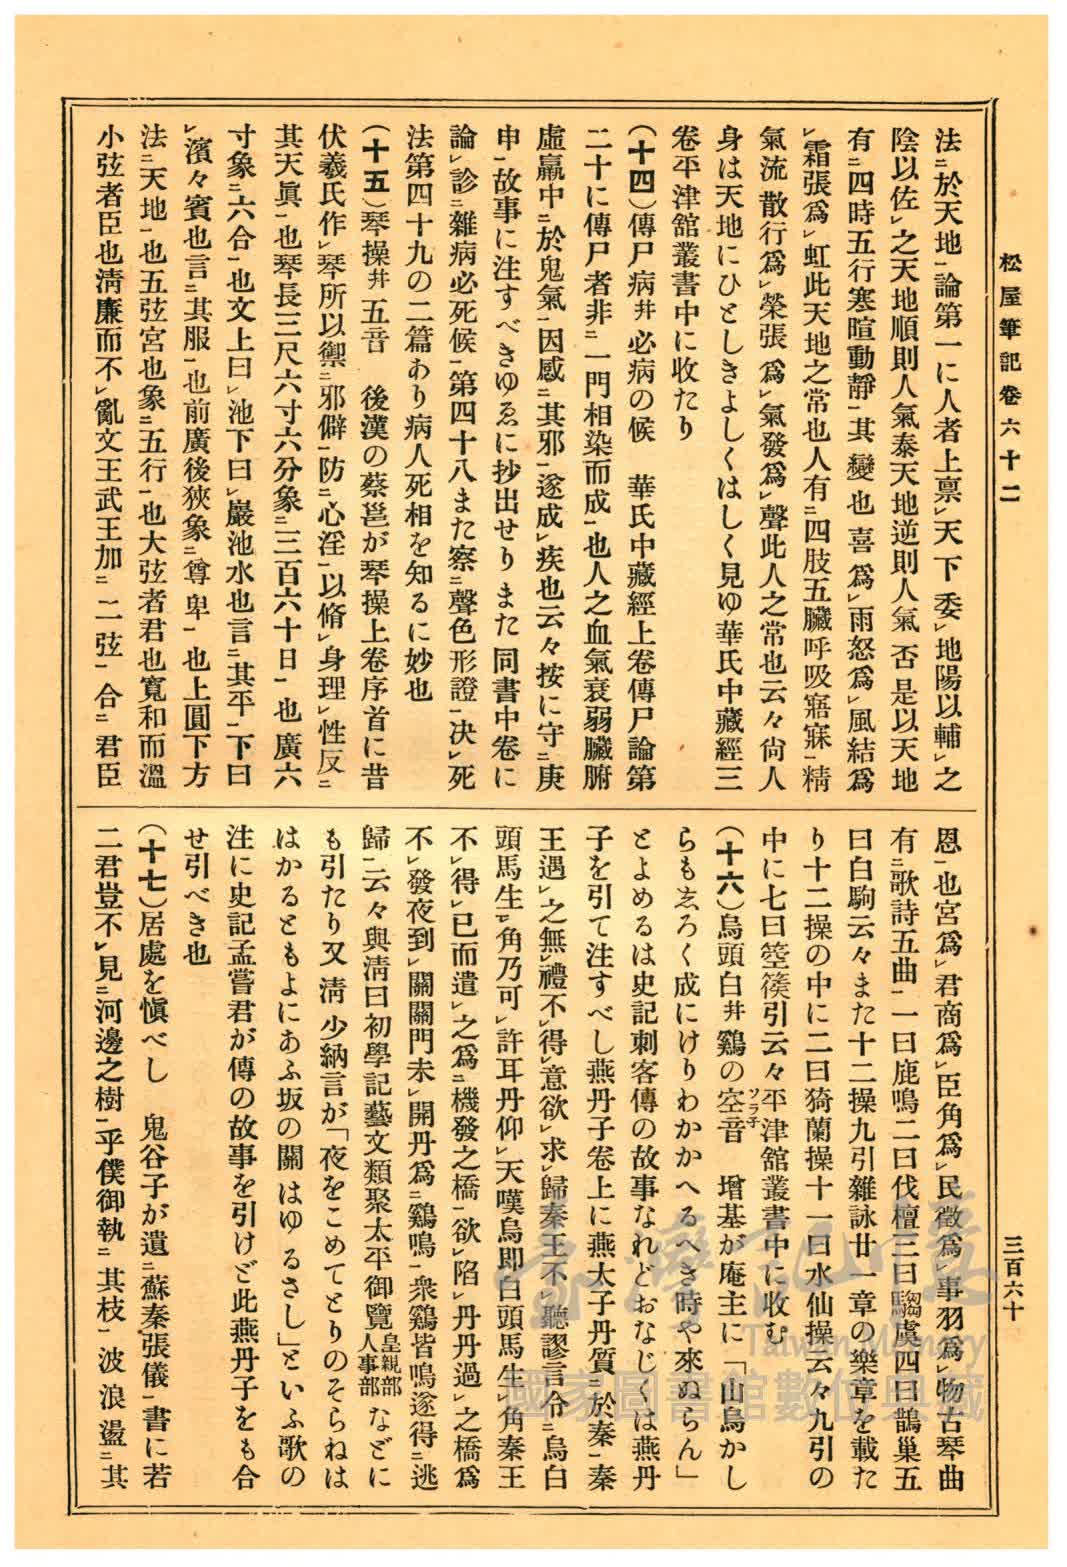 松屋筆記卷六十二
三百六十
法ニ於天地一論第一に人者上禀レ天下委レ地陽以輔レ之
陰以佐レ之天地順則人氣泰天地逆則人氣否是以天地
有ニ四時五行寒暄動靜一其變也喜爲レ雨怒爲レ風結爲
レ霜張爲レ虹此天地之常也人有ニ四肢五臟呼吸寤寐一精
氣流散行爲レ榮張爲レ氣發爲レ聲此人之常也云々尙人
身は天地にひとしきよしくはしく見ゆ華氏中藏經三
卷平津舘叢書中に收たり
(十四)傳尸病井必病の候 華氏中藏經上卷傳尸論第
二十に傳尸者非ニ一門相染而成一也人之血氣衰弱臟腑
虛羸中ニ於鬼氣一因感ニ其邪一遂成レ疾也云々按に守ニ庚
申一故事に注すべきゆゑに抄出せりまた同書中卷に
論レ診ニ雜病必死候一第四十八また察ニ聲色形證一决レ死
法第四十九の二篇あり病人死相を知るに妙也
(十五)琴操井五音 後漢の蔡邕が琴操上卷序首に昔
伏羲氏作レ琴所以禦ニ邪僻一防ニ心淫一以脩レ身理レ性反ニ
其天眞一也琴長三尺六寸六分象ニ三百六十日一也廣六
寸象ニ六合一也文上曰レ池下曰レ巖池水也言ニ其平一下曰
レ濱々賓也言ニ其服一也前廣後狹象ニ尊卑一也上圓下方
法ニ天地一也五弦宮也象ニ五行一也大弦者君也寬和而溫
小弦者臣也淸廉而不レ亂文王武王加ニ二弦一合ニ君臣
恩一也宮爲レ君商爲レ臣角爲レ民徵爲レ事羽爲レ物古琴曲
有ニ歌詩五曲一一曰鹿鳴二曰伐檀三曰騶虞四曰鵲巢五
曰白駒云々また十二操九引雜詠廿一章の樂章を載た
り十二操の中に二曰猗蘭操十一曰水仙操云々九引の
中に七曰箜篌引云々平津舘叢書中に收む
(十六)烏頭白井鷄の空音ソラ子 增基が庵主に「山烏かし
らも志ろく成にけりわかかへるへき時や來ぬらん」
とよめるは史記刺客傳の故事なれどおなじくは燕丹
子を引て注すべし燕丹子卷上に燕太子丹質ニ於秦一秦
王遇レ之無レ禮不レ得レ意欲レ求レ歸秦王不レ聽謬言令ニ烏白
頭馬生一レ角乃可レ許耳丹仰レ天嘆烏即白頭馬生レ角秦王
不レ得レ已而遣レ之爲ニ機發之橋一欲レ陷レ丹丹過レ之橋爲
不レ發夜到レ關關門未レ開丹爲ニ鷄鳴一衆鷄皆鳴遂得ニ逃
歸一云々與淸曰初學記藝文類聚太平御覽皇親部人事部などに
も引たり又淸少納言が「夜をこめてとりのそらねは
はかるともよにあふ坂の關はゆるさし」といふ歌の
注に史記孟嘗君が傳の故事を引けど此燕丹子をも合
せ引べき也
(十七)居處を愼べし 鬼谷子が遺ニ蘇秦張儀一書に若
二君豈不レ見ニ河邊之樹一乎僕御執ニ其枝一波浪盪ニ其
臺灣記憶
Taiwan Memory
國家圖書館數位典藏